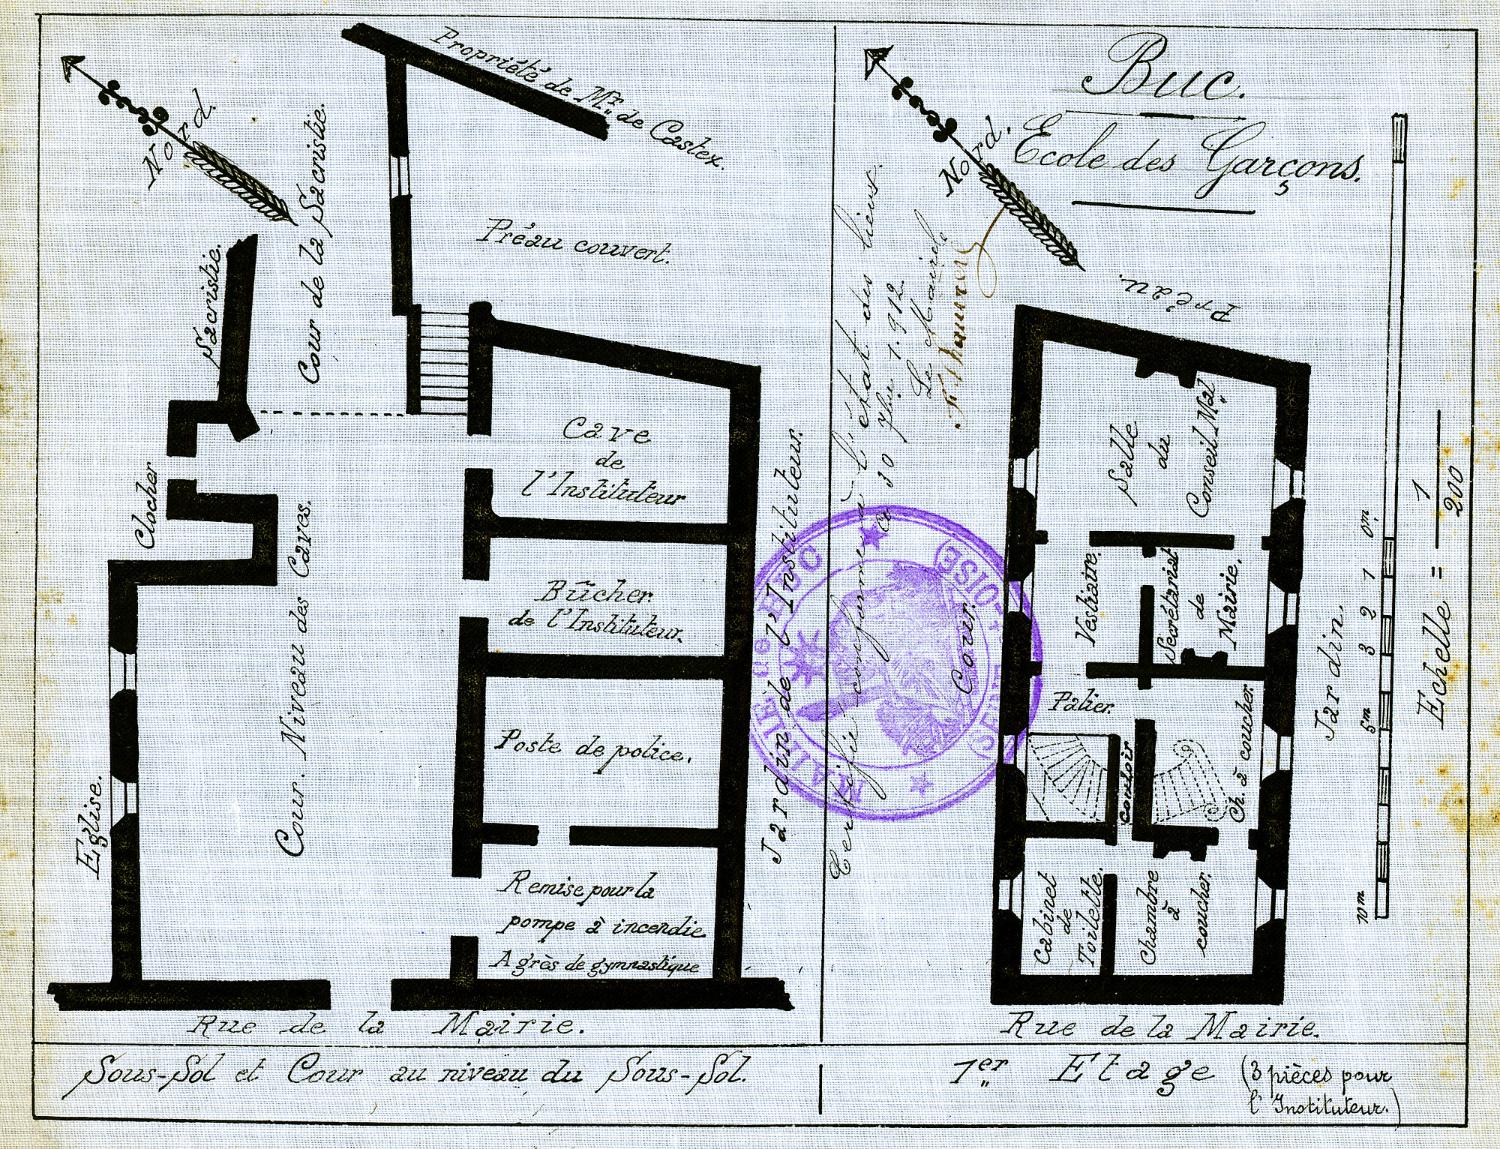 Buc.
Ecole des Garçons.
Nord.
Cour de la Sacristie.
Sacristie.
Propriété de Mr. de Castex.
Préau couvert.
Cave
de
l'Instituteur
Clocher
Bûcher
de l'Instituteur.
Cour. Niveau des Caves.
Poste de police.
Eglise.
Remise pour la
pompe à incendie
Agrès de gymnastique
Jardin de l'Instituteur.
Rue de la Mairie.
Sous-Sol et Cour au niveau du Sous-Sol.
Certifié conforme à l'état des lieux.
30 7bre 1.912.
Le Maire
MAIRIE de BUC
OISE)
Nord.
Préau.
Salle
du
Conseil Mal
Vestiaire.
Secrétariat
de
Mairie.
Cour.
Palier.
Couloir
Ch. à coucher.
Cabinet
de
Toilette.
Chambre
à
coucher.
Jardin.
Rue de la Mairie.
1er Etage (3 pièces pour
l'Instituteur.)
0m
1
2
3
5m
10m
Echelle = 1
200